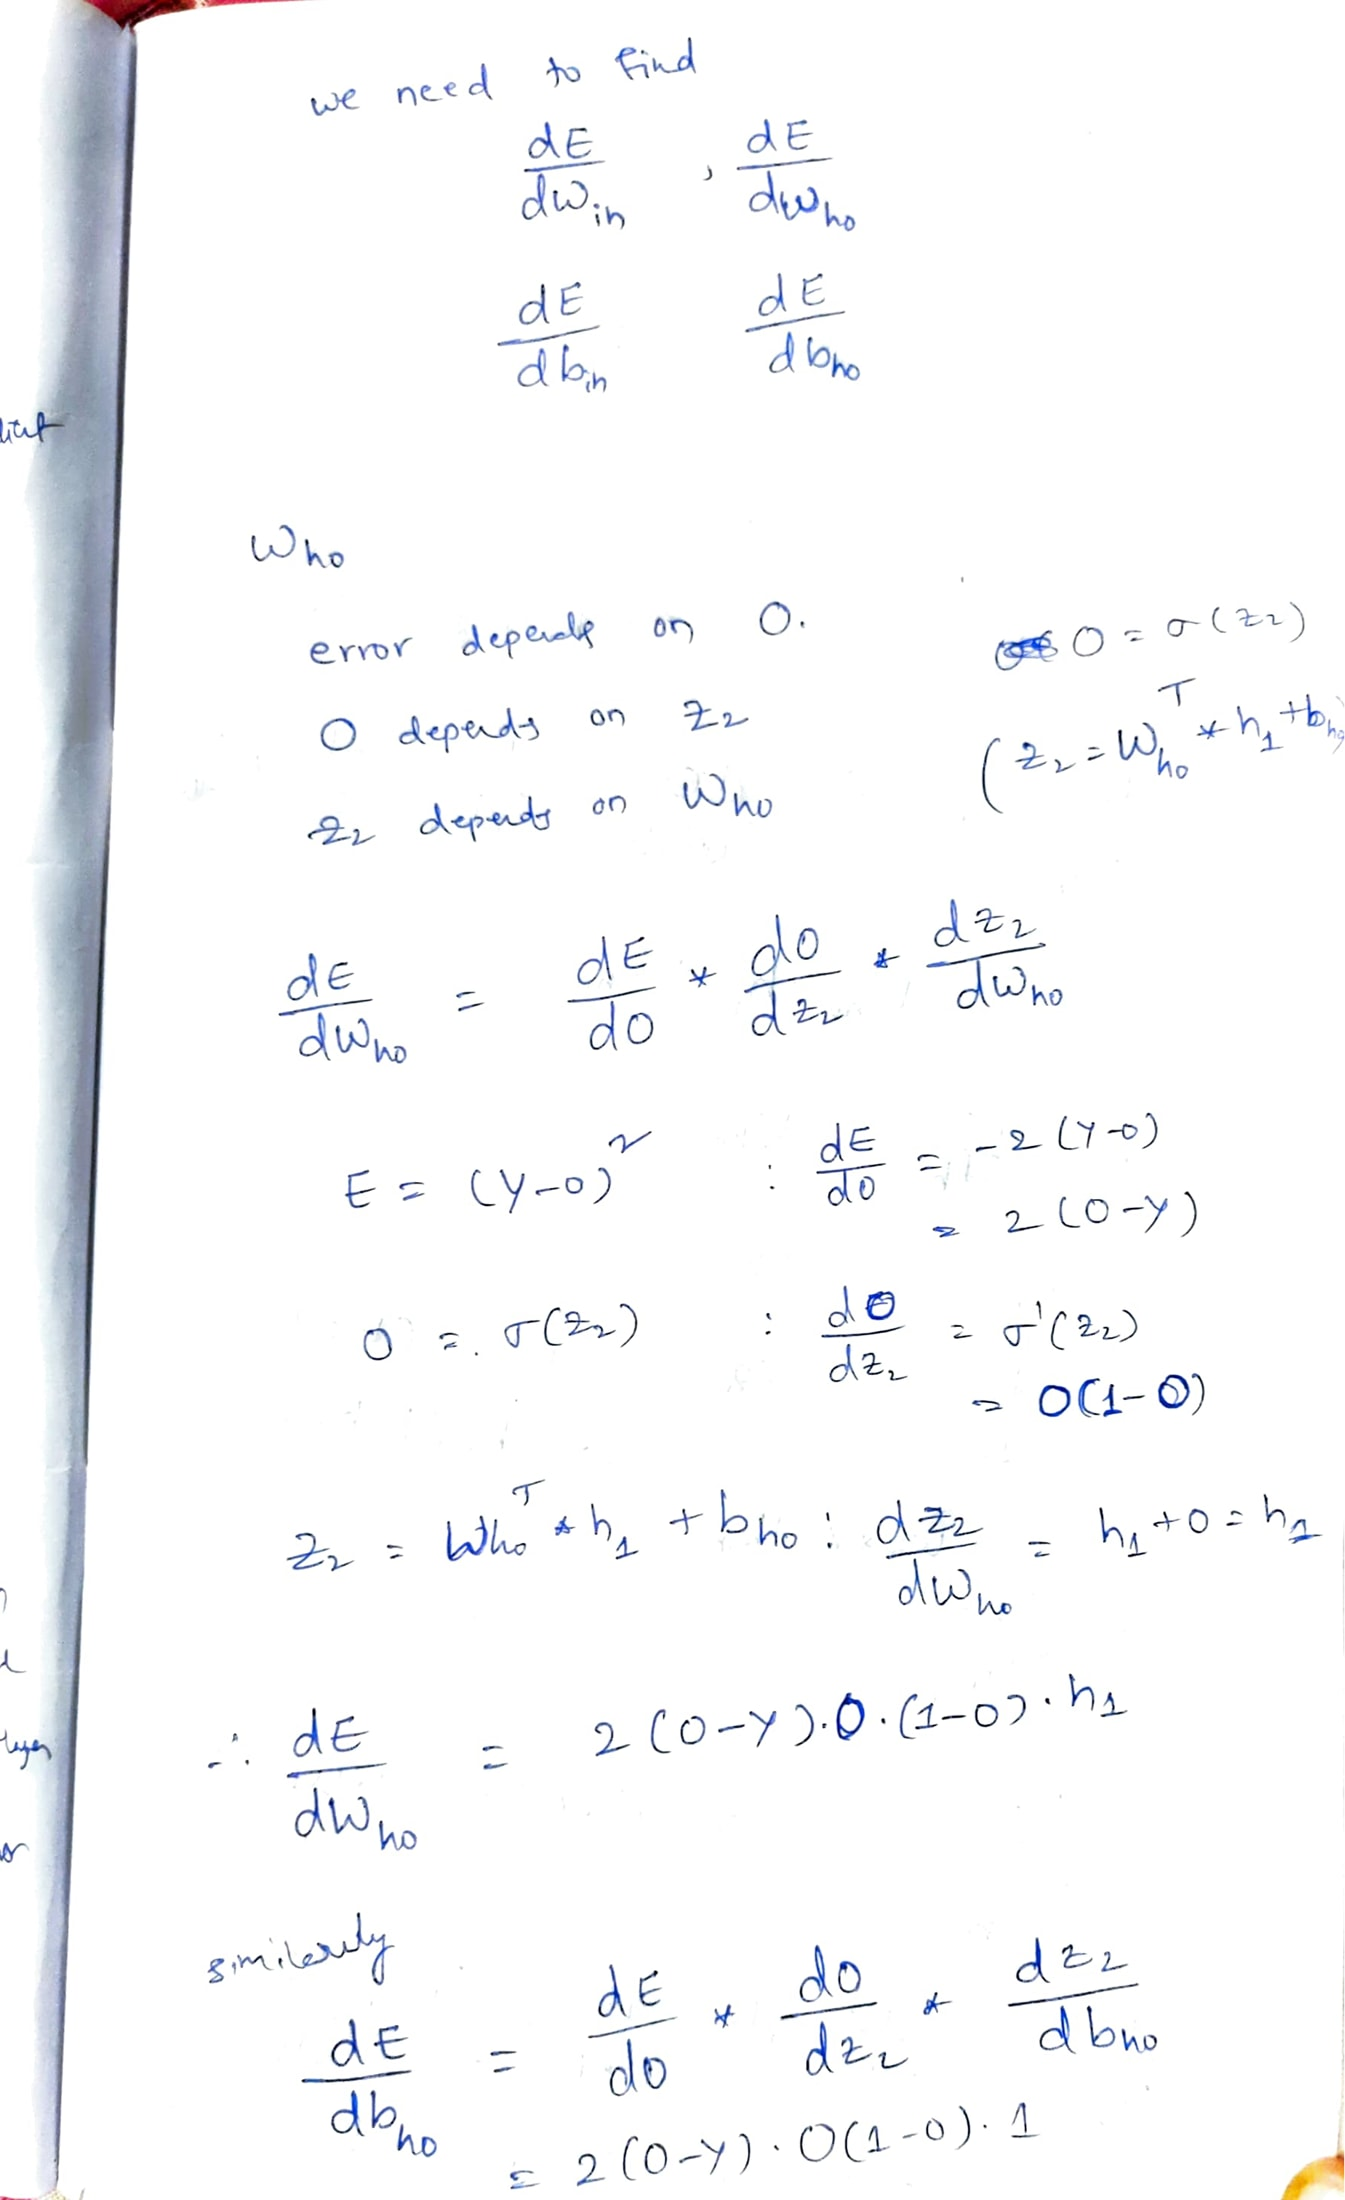 we need to find
dE/dw_ih , dE/dw_ho
dE/db_ih dE/db_ho
W_ho
error depends on O.
O = σ(z₂)
O depends on z₂
(z₂ = W_ho^T * h₁ + b_ho
z₂ depends on W_ho
dE/dW_ho = dE/dO * dO/dz₂ * dz₂/dW_ho
E = (Y-O)² : dE/dO = -2(Y-O)
= 2(O-Y)
O = σ(z₂) : dO/dz₂ = σ'(z₂)
= O(1-O)
z₂ = W_ho^T * h₁ + b_ho : dz₂/dW_ho = h₁+0 = h₁
∴ dE/dW_ho = 2(O-Y).O.(1-O).h₁
similarly
dE/db_ho = dE/dO * dO/dz₂ * dz₂/db_ho
= 2(O-Y).O(1-O).1